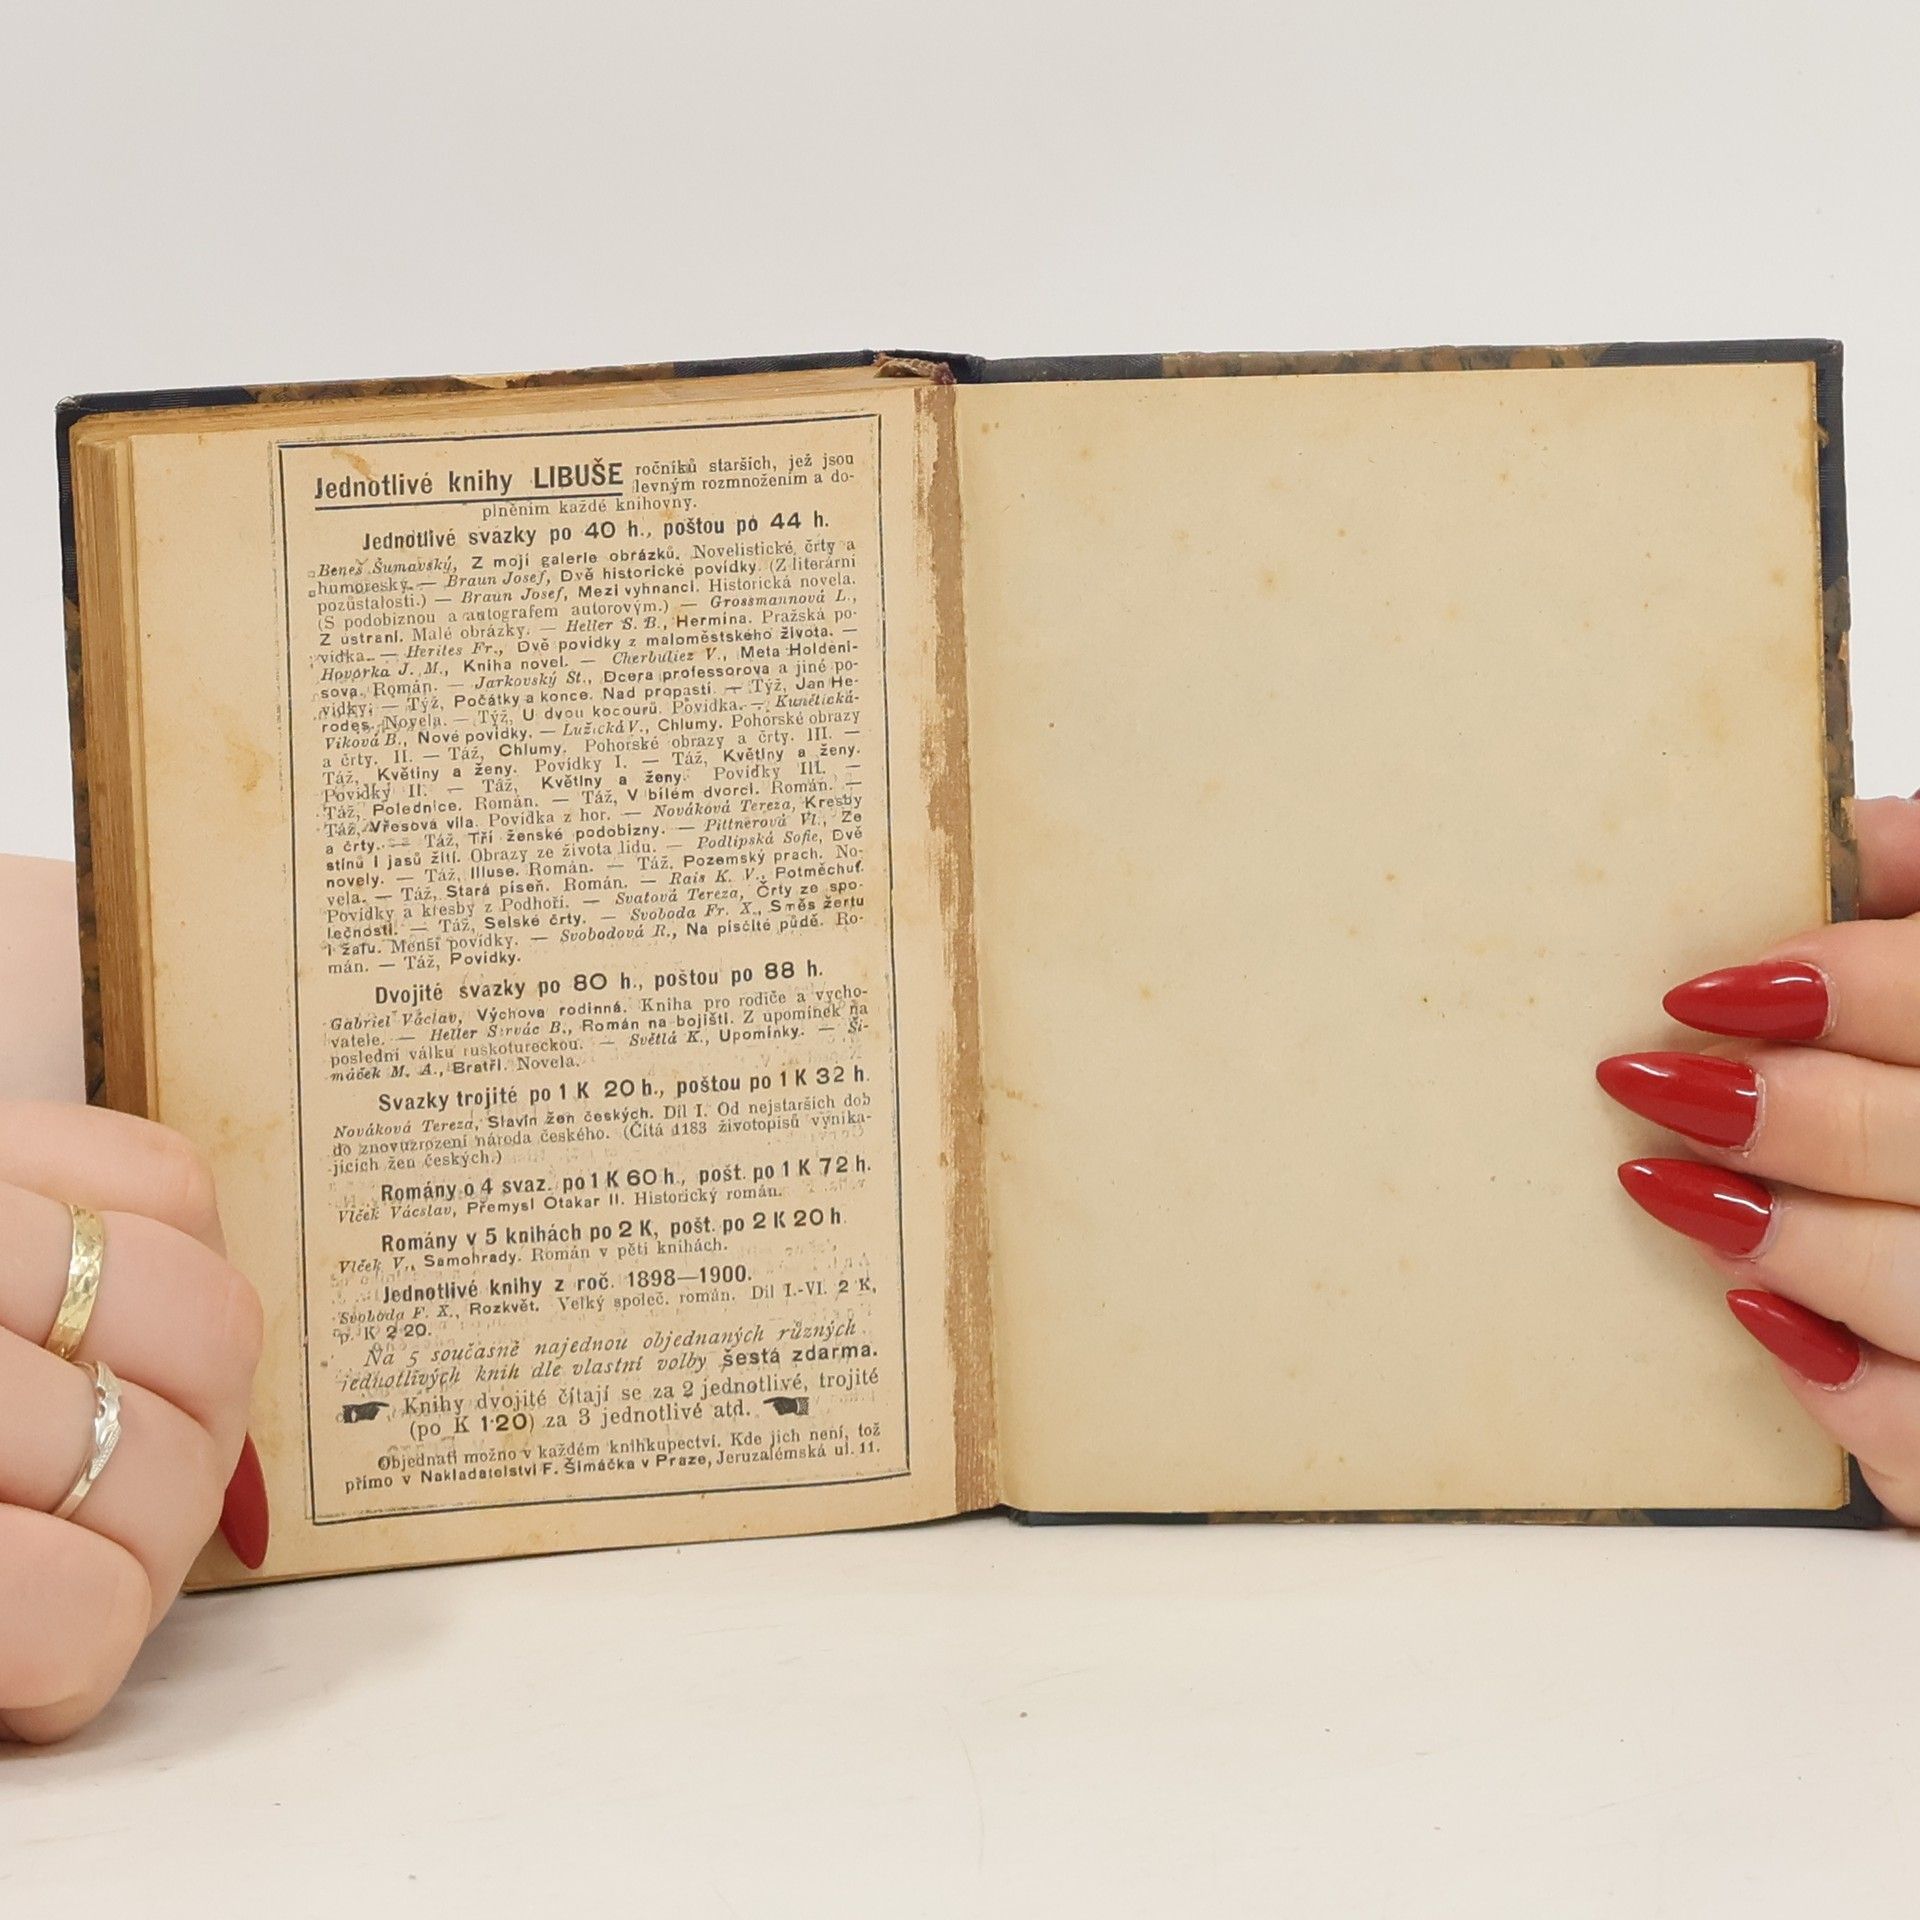 Jednotlivé knihy LIBUŠE ročníků starších, jež jsou
levným rozmnožením a do-
plněním každé knihovny.
Jednotlivé svazky po 40 h., poštou po 44 h.
Beneš Šumavský, Z mojí galerie obrázků. Novelistické črty a
humoresky. — Braun Josef, Dvě historické povídky. (Z literární
pozůstalosti.) — Braun Josef, Mezi vyhnanci. Historická novela.
(S podobiznou a autografem autorovým.) — Grossmannová L.,
Z ústraní. Malé obrázky. — Heller S. B., Hermína. Pražská po-
vídka. — Herites Fr., Dvě povídky z maloměstského života. —
Hovorka J. M., Kniha novel. — Cherbuliez V., Meta Holdeni-
sova. Román. — Jarkovský St., Dcera professorova a jiné po-
vídky. — Týž, Počátky a konce. Nad propastí. — Týž, Jan He-
rodes. Novela. — Týž, U dvou kocourů. Povídka. — Kunětická-
Viková B., Nové povídky. — Lužická V., Chlumy. Pohorské obrazy
a črty. II. — Táž, Chlumy. Pohorské obrazy a črty. III. —
Táž, Květiny a ženy. Povídky I. — Táž, Květiny a ženy.
Povídky II. — Táž, Květiny a ženy. Povídky III. —
Táž, Polednice. Román. — Táž, V bílém dvorci. Román. —
Táž, Vřesová vila. Povídka z hor. — Nováková Tereza, Kresby
a črty. — Táž, Tři ženské podobizny. — Pittnerová Vl., Ze
stínů i jasů žití. Obrazy ze života lidu. — Podlipská Sofie, Dvě
novely. — Táž, Illuse. Román. — Táž, Pozemský prach. No-
vela. — Táž, Stará píseň. Román. — Rais K. V., Potměchuť.
Povídky a kresby z Podhoří. — Svatová Tereza, Črty ze spo-
lečnosti. — Táž, Selské črty. — Svoboda Fr. X., Směs žertu
i žalu. Menší povídky. — Svobodová R., Na písčité půdě. Ro-
mán. — Táž, Povídky.
Dvojité svazky po 80 h., poštou po 88 h.
Gabriel Václav, Výchova rodinná. Kniha pro rodiče a vycho-
vatele. — Heller Servác B., Román na bojišti. Z upomínek na
poslední válku ruskotureckou. — Světlá K., Upomínky. — Ši-
máček M. A., Bratři. Novela.
Svazky trojité po 1 K 20 h., poštou po 1 K 32 h.
Nováková Tereza, Slavín žen českých. Díl I. Od nejstarších dob
do znovuzrození národa českého. (Čítá 1183 životopisů vynika-
jících žen českých.)
Romány o 4 svaz. po 1 K 60 h., pošt. po 1 K 72 h.
Vlček Vácslav, Přemysl Otakar II. Historický román.
Romány v 5 knihách po 2 K, pošt. po 2 K 20 h.
Vlček V., Samohrady. Román v pěti knihách.
Jednotlivé knihy z roč. 1898—1900.
Svoboda F. X., Rozkvět. Velký společ. román. Díl I.-VI. 2 K,
p. K 2·20.
Na 5 současně najednou objednaných různých
jednotlivých knih dle vlastní volby šestá zdarma.
Knihy dvojité čítají se za 2 jednotlivé, trojité
(po K 1·20) za 3 jednotlivé atd.
Objednati možno v každém knihkupectví. Kde jich není, tož
přímo v Nakladatelství F. Šimáčka v Praze, Jeruzalémská ul. 11.